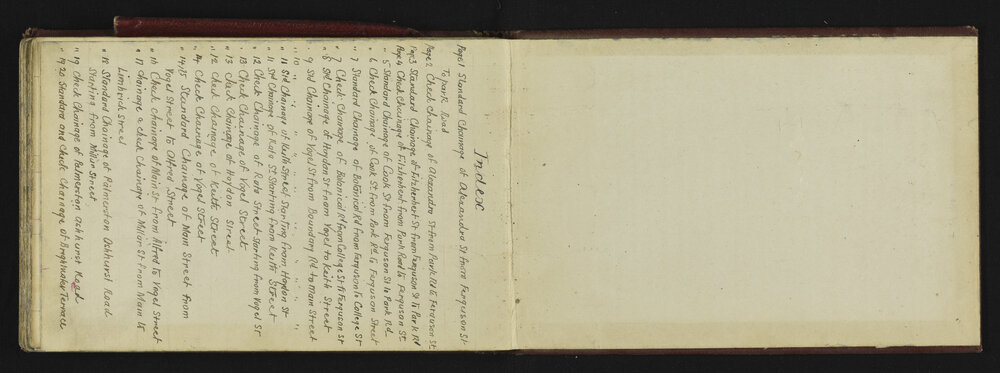 Index
Page 1 Standard Chainage of Alexandra St from Ferguson St
To Park Road
Page 2 Check chainage of Alexandra St from Park Rd to Ferguson St
Page 3 Standard Chainage of Fitzherbert St from Ferguson St to Park Rd
Page 4 Check Chainage of Fitzherbert from Park Road to Ferguson St
" 5 Standard Chainage of Cook St from Ferguson St to Park Rd
" 6 Check Chainage of Cook St from Park Rd to Ferguson Street
" 7 Standard Chainage of Botanical Rd from Ferguson to College St
" 7 Check Chainage of Botanical Rd from College St to Ferguson St
" 8 Std Chainage of Haydon St from Vogel to Keith Street
" 9 Std Chainage of Vogel St from Boundary Rd to Main Street
" 10 " " " " " " " "
" 11 Std Chainage of Keith Street Starting from Haydon St
" 11 Std Chainage of Rata St Starting from Keith Street
" 12 Check Chainage of Rata Street Starting from Vogel St
" 13 Check Chainage of Vogel Street
" 13 Check Chainage of Haydon Street
" 12 Check Chainage of Keith Street
" 14 Check Chainage of Vogel Street
" 14/15 Standard Chainage of Main Street from
Vogel Street to Alfred Street
" 16 Check Chainage of Main St from Alfred to Vogel Street
" 17 Chainage & Check Chainage of Millar St from Main to
Limbrick Street
" 18 Standard Chainage of Palmerston Ashhurst Road
Starting from Millar Street
" 19 Check Chainage of Palmerston Ashhurst Road
" 19 20 Standard and Check Chainage of Brightwater Terrace